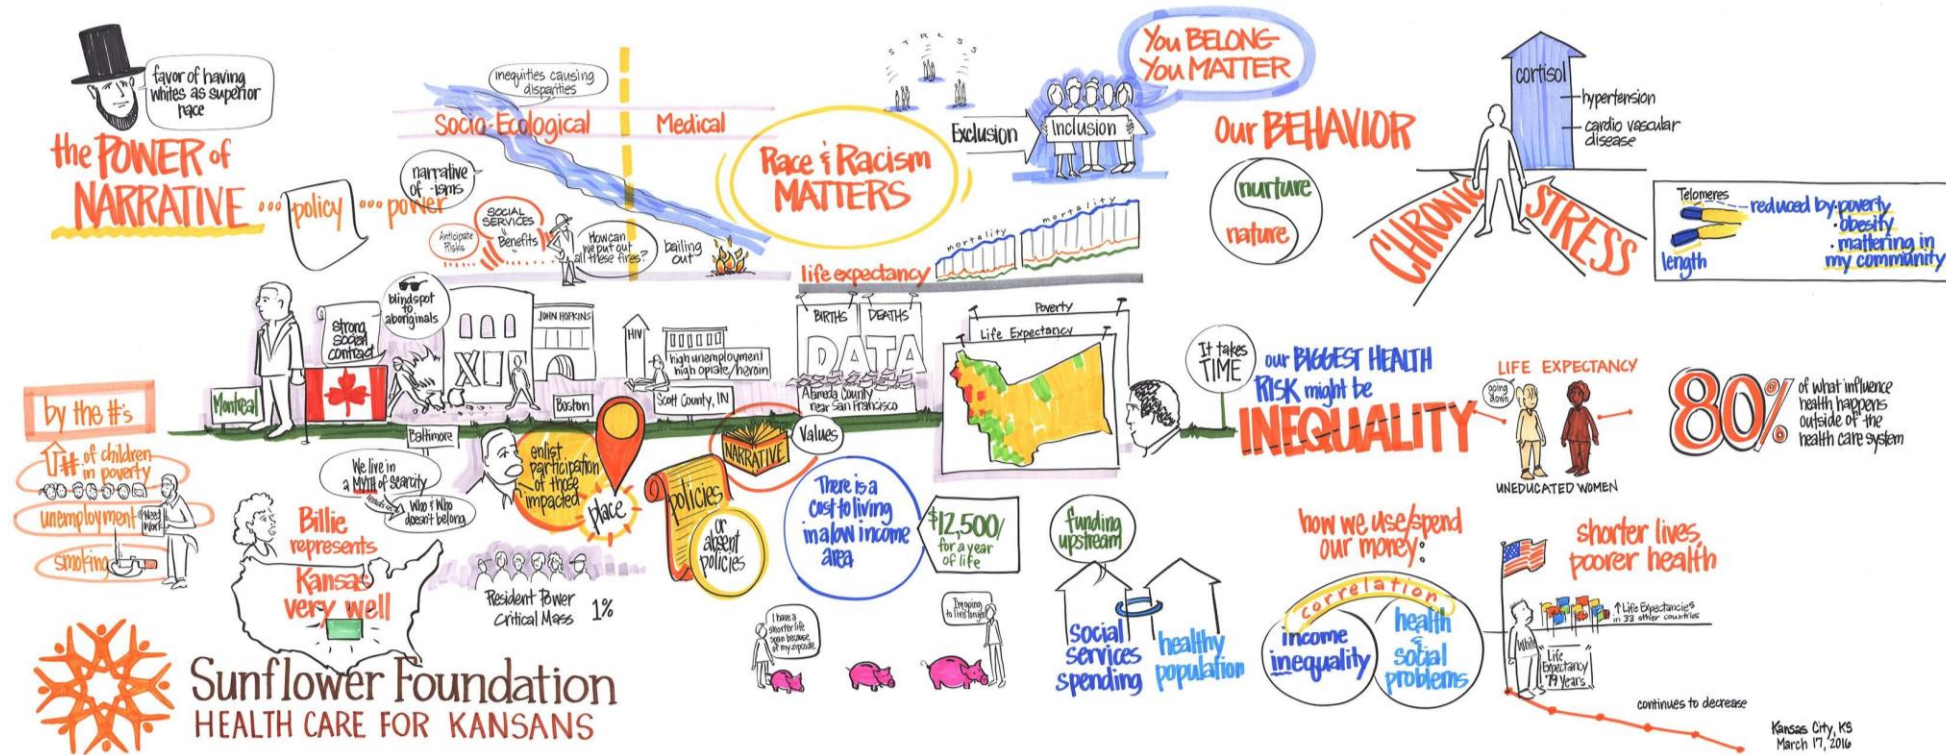 favor of having
whites as superior
race
the POWER of
NARRATIVE
... policy ... power
inequities causing
disparities
Socio-Ecological
Medical
narrative
of -isms
Anticipate
Risks
SOCIAL
SERVICES
Benefits
How can
we put out
all these fires?
bailing
out
Race & Racism
MATTERS
STRESS
Exclusion
Inclusion
You BELONG
You MATTER
life expectancy
mortality
mortality
our BEHAVIOR
nurture
nature
cortisol
hypertension
cardio vascular
disease
CHRONIC
STRESS
Telomeres
length
reduced by: poverty
· obesity
· mattering in
my community
Montreal
strong
social
contract
blindspot
to
aboriginals
Baltimore
JOHN HOPKINS
Boston
HIV
high unemployment
high opiate/heroin
Scott County, IN
BIRTHS
DEATHS
DATA
Alameda County
near San Francisco
Poverty
Life Expectancy
It takes
TIME
our BIGGEST HEALTH
RISK might be
INEQUALITY
LIFE EXPECTANCY
going
down
UNEDUCATED WOMEN
80%
of what influence
health happens
outside of the
health care system
by the #'s
# of children
in poverty
unemployment
Need
Work
smoking
We live in
a MYTH of scarcity
Who & Who
doesn't belong
Billie
represents
Kansas
very well
enlist
participation
of those
impacted
place
Resident Power
Critical Mass
1%
NARRATIVE
Values
policies
or
absent
policies
There is a
cost to living
in a low income
area
$12,500/
for a year
of life
I have a
shorter life
span because
of my zipcode
I'm going
to live longer
funding
upstream
social
services
spending
healthy
population
how we use/spend
our money:
correlation
income
inequality
health
&
social
problems
shorter lives,
poorer health
↑ Life Expectancies
in 33 other countries
White
Life
Expectancy
79 Years
continues to decrease
Sunflower Foundation
HEALTH CARE FOR KANSANS
Kansas City, KS
March 17, 2016